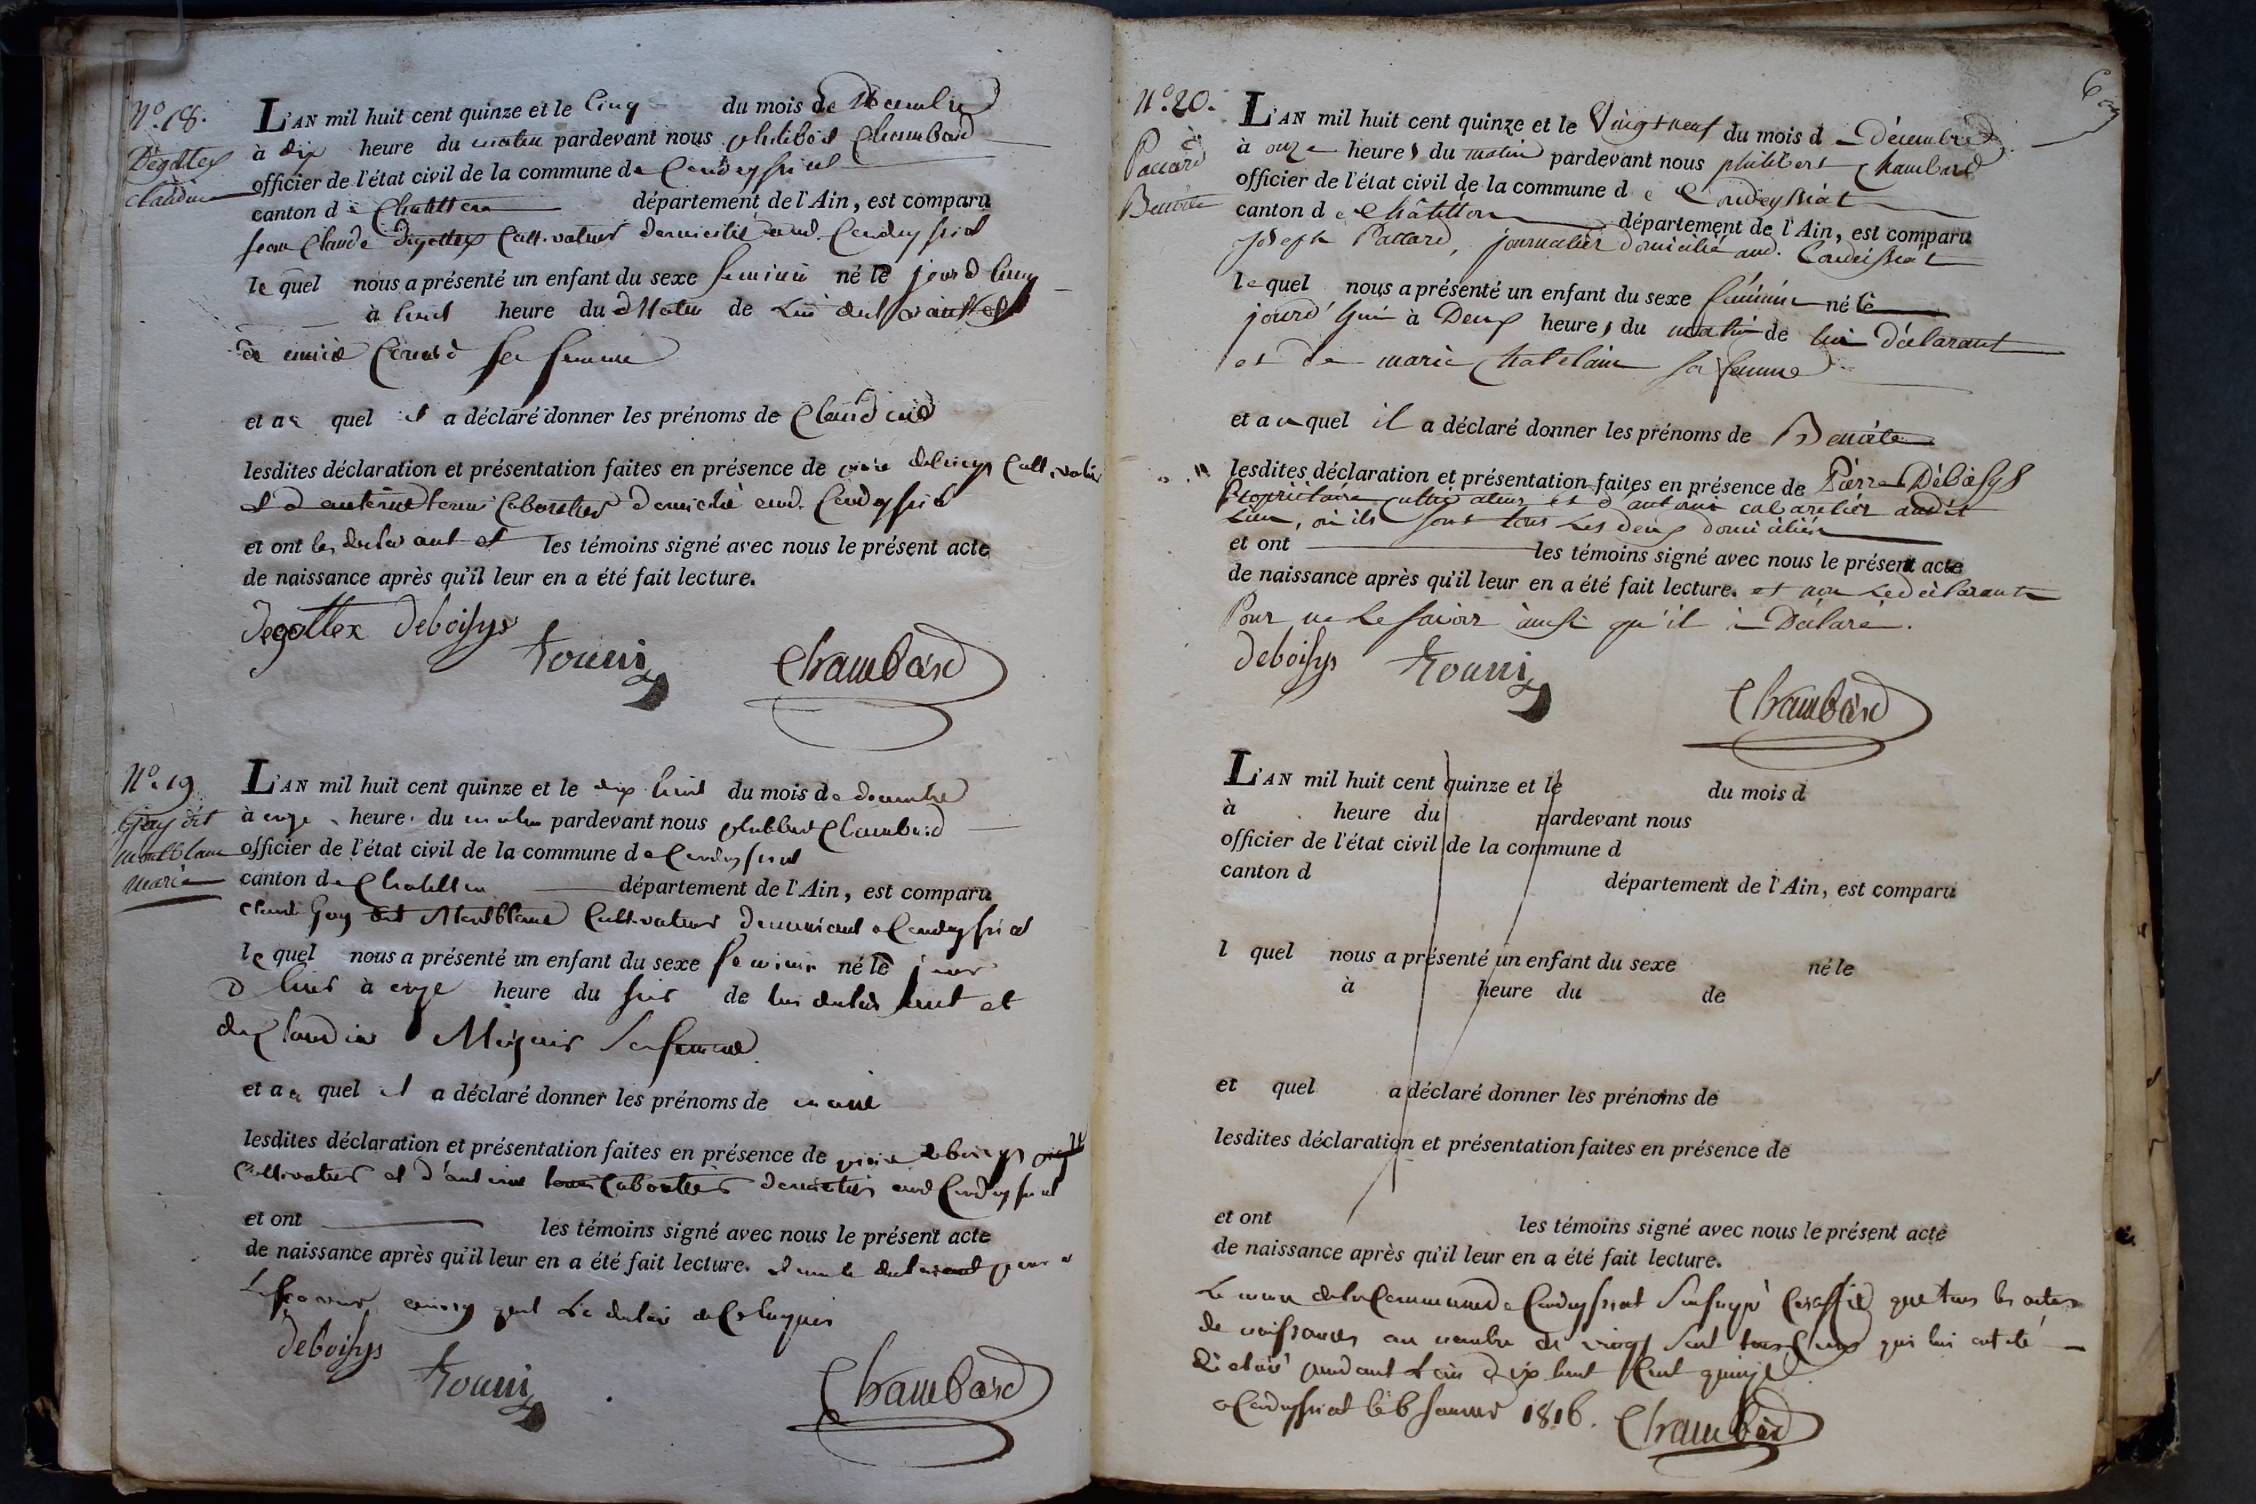 N.º 18.
Degottex
Claudine
L'AN mil huit cent quinze et le Cinq du mois de Décembre
à dix heure du matin pardevant nous philibert Chambard
officier de l'état civil de la commune de Condeyssiat
canton de Chatillon département de l'Ain, est comparu
jean Claude degottex Cultivateur domicilié aud. Condeyssiat
le quel nous a présenté un enfant du sexe feminin né le jourd huy
à huit heure du Matin de lui declarant et
de marie sa femme
et au quel il a déclaré donner les prénoms de Claudine
lesdites déclaration et présentation faites en présence de pierre deboisys Cultivateur
et d antoine domicilié aud. Condeyssiat
et ont les declarant et les témoins signé avec nous le présent acte
de naissance après qu'il leur en a été fait lecture.
degottex deboisys
Chambard
N.º 19
Guy dit
montblanc
marie
L'AN mil huit cent quinze et le dix huit du mois de decembre
à onze heure du matin pardevant nous philibert Chambard
officier de l'état civil de la commune de Condeyssiat
canton de Chatillon département de l'Ain, est comparu
Guy dit Montblanc Cultivateur demeurant a Condeyssiat
le quel nous a présenté un enfant du sexe feminin né le jour
d huit à onze heure du soir de lui declarant et
de Claudine sa femme
et au quel il a déclaré donner les prénoms de marie
lesdites déclaration et présentation faites en présence de pierre deboisys
Cultivateur et d'antoine domicilies aud Condeyssiat
et ont les témoins signé avec nous le présent acte
de naissance après qu'il leur en a été fait lecture. et non le declarant pour
le declaré
deboisys
Chambard
6
N.º 20.
Paccard
Benoite
L'AN mil huit cent quinze et le Vingt neuf du mois d Décembre
à onze heures du matin pardevant nous philibert Chambard
officier de l'état civil de la commune d e Condeyssiat
canton d e Châtillon département de l'Ain, est comparu
joseph Paccard, journalier domicilié aud. Condeissiat
le quel nous a présenté un enfant du sexe féminin né le
jourd'hui à Deux heures du matin de lui Déclarant
et de marie Chatelain sa femme
et au quel il a déclaré donner les prénoms de Benoite
lesdites déclaration et présentation faites en présence de Pierre Déboisys
Propriétaire cultivateur et d'antoine cabaretier audit
Lieu, où ils sont tous les deux domiciliés
et ont les témoins signé avec nous le présent acte
de naissance après qu'il leur en a été fait lecture. et non le déclarant
Pour ne le savoir ainsi qu'il a Déclaré.
deboisys
Chambard
L'AN mil huit cent quinze et le du mois d
à heure du pardevant nous
officier de l'état civil de la commune d
canton d département de l'Ain, est comparu
l quel nous a présenté un enfant du sexe né le
à heure du de
et quel a déclaré donner les prénoms de
lesdites déclaration et présentation faites en présence de
et ont les témoins signé avec nous le présent acte
de naissance après qu'il leur en a été fait lecture.
Le maire de la Commune de Condeyssiat Soussigné Certifie que tous les actes
de naissances au nombre de vingt sont tous ceux qui lui ont été
Déclaré pendant L'an dix huit Cent quinze
a Condeyssiat le 6 Janvier 1816. Chambard